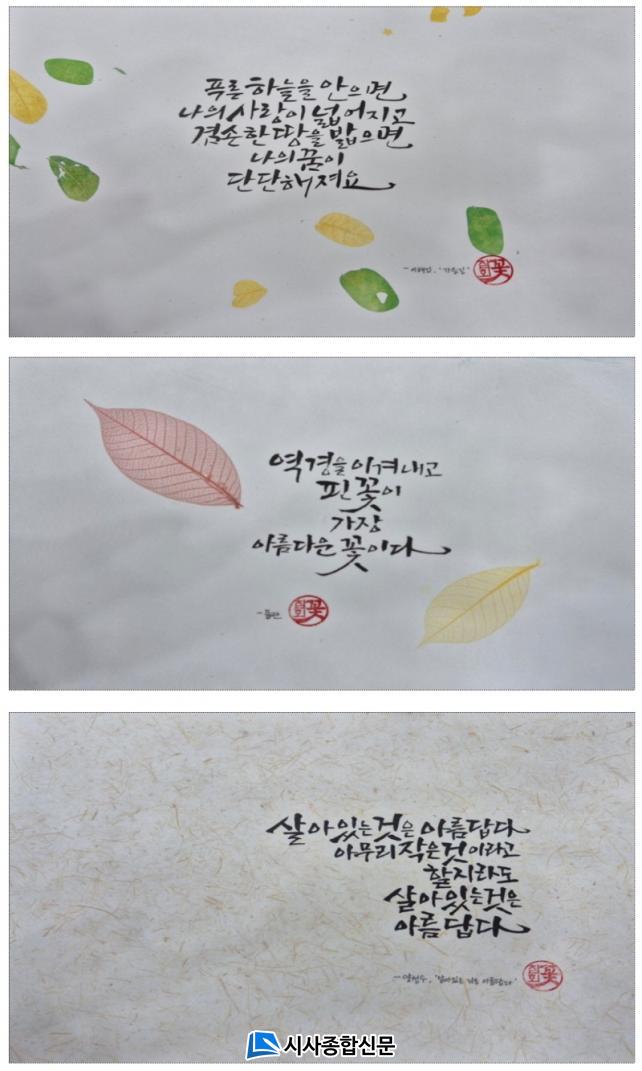 푸른 하늘을 안으면
나의 사랑이 넓어지고
겸손한 땅을 밟으면
나의 꿈이
단단해져요
꽃
역경을 이겨내고
핀 꽃이
가장
아름다운 꽃이다
- 뮬란
꽃
살아있는 것은 아름답다
아무리 작은 것이라고
할지라도
살아있는 것은
아름답다
- 양성우, '살아있는 것은 아름답다'
꽃
시사종합신문